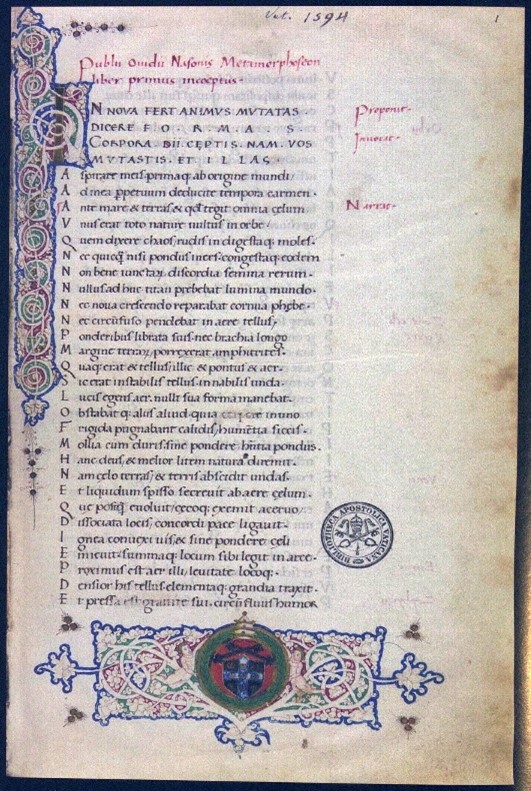 Vat. 1594
1
Publii Ouidii Nasonis Metamorphoseon
liber primus incoeptus·
IN NOVA FERT ANIMVS MVTATAS
DICERE F O · R · M · A · S
CORPORA · DII CĘPTIS · NAM · VOS
MVTASTIS · ET · ILLAS
Proponit·
Inuocat·
Aspirate meis· primaq; ab origine mundi
Ad mea ꝑpetuum deducite tempora carmen·
Ante mare & terras & qđ tegit omnia cęlum
Narrat·
Vnus erat toto naturę uultus in orbe·
Quem dixere chaos, rudis indigestaq; moles·
Nec quicq̃ nisi pondus iners· congestaq; eodem
Non bene iunctaꝝ discordia semina rerum·
Nullus adhuc titan prebebat lumina mundo·
Nec noua crescendo reparabat cornua phębe·
Nec circũfuso pendebat in aere tellus,
Ponderibus librata suis· nec brachia longo
Margine terraꝝ porrexerat amphitrites·
Quaq; erat & tellus, illic & pontus & aer·
Sic erat instabilis tellus· innabilis unda·
Lucis egens aer· nulli sua forma manebat·
Obstabat q; aliis aliud· quia corpore in uno
Frigida pugnabant calidis, humentia siccis·
Mollia cum duris· sine pondere hñtia pondus·
Hanc deus, & melior litem natura diremit·
Nam cęlo terras, & terris abscidit undas·
Et liquidum spisso secreuit ab aere cęlum·
Quę postq̃ euoluit, cęcoq; exemit aceruo,
Dissociata locis, concordi pace ligauit·
Ignea conuexi uis, & sine pondere cęli
Emicuit· summaq; locum sibi legit in arce·
Proximus est aer illi, leuitate locoq;·
Densior his tellus· elementaq; grandia traxit·
Et pressa est grauitate sui· circũfluus humor
BIBLIOTHECA APOSTOLICA VATICANA